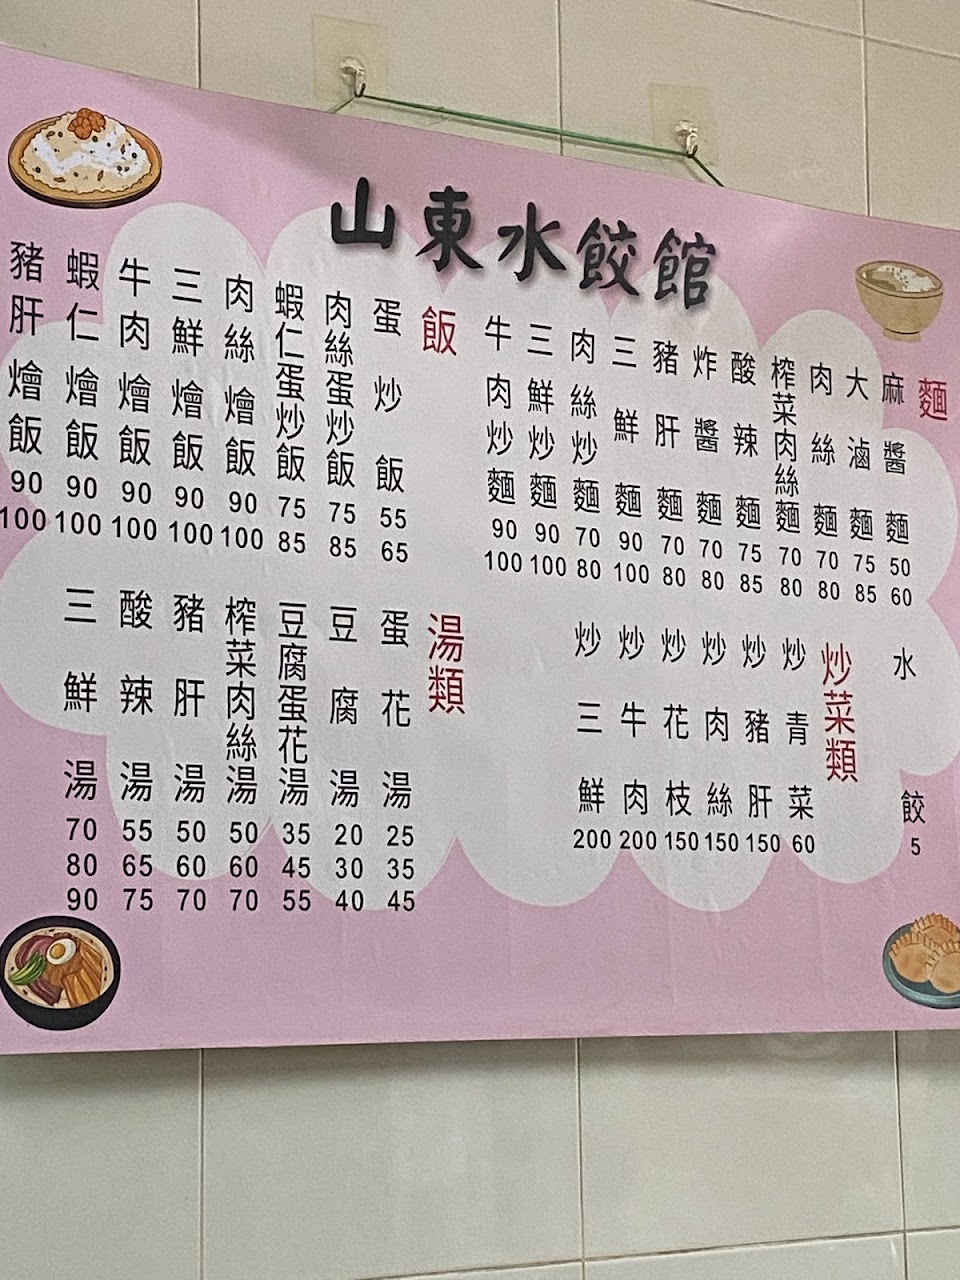 山東水餃館
麵
麻醬麵 50 60
大滷麵 75 85
肉絲麵 70 80
榨菜肉絲麵 70 80
酸辣麵 75 85
炸醬麵 70 80
豬肝麵 70 80
三鮮麵 90 100
肉絲炒麵 70 80
三鮮炒麵 90 100
牛肉炒麵 90 100
飯
蛋炒飯 55 65
肉絲蛋炒飯 75 85
蝦仁蛋炒飯 75 85
肉絲燴飯 90 100
三鮮燴飯 90 100
牛肉燴飯 90 100
蝦仁燴飯 90 100
豬肝燴飯 90 100
水餃 5
炒菜類
炒青菜 60
炒豬肝 150
炒肉絲 150
炒花枝 150
炒牛肉 200
炒三鮮 200
湯類
蛋花湯 25 35 45
豆腐湯 20 30 40
豆腐蛋花湯 35 45 55
榨菜肉絲湯 50 60 70
豬肝湯 50 60 70
酸辣湯 55 65 75
三鮮湯 70 80 90